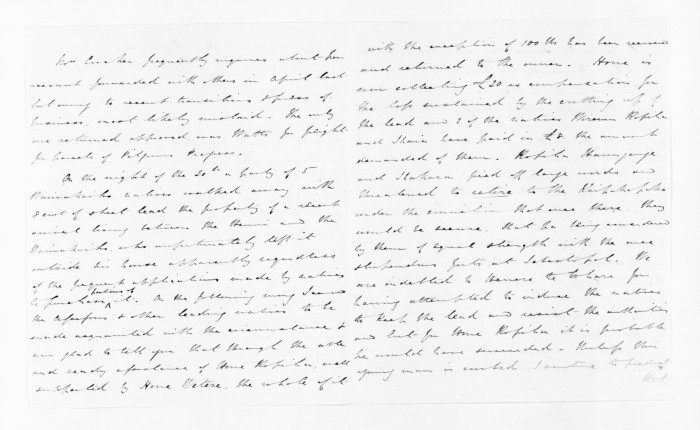 Mrs frequently enquires about her
account forwarded with others in April last
but owing to recent transitions & press of
business, most likely mislaid. The only
one returned approved was Watts for freight
for parcels of Pilgrims Progress.
On the night of the 20th a party of 5
natives walked away with
8 cwt of sheet lead the property of a recent
arrival living between the and the
who unfortunately left it
outside his house apparently regardless
of the frequent applications made by natives
to purchase portions of it. On the following morng I caused
the & other leading natives to be
made acquainted with the circumstance &
am glad to tell you that through the able
and ready assistance of Hone Ropiha, well
supported by Hone Wetere, the whole of it
with the exception of 100 lbs has been recovered
and returned to the owner. Hone is
now collecting £20 as compensation for
the loss sustained by the cutting up of
the lead and 2 of the natives Wiremu Ropiha
and Ihaia have paid in £8 the amount
demanded of them. Ropiha
and used large words and
threatened to retire to the
under the conviction that once there, they
would be secure, that Pa being considered
by them of equal strength with the once
stupendous forts at Sebastopol. We
are indebted to for
having attempted to induce the natives
to keep the lead and resist the authorities
and but for Hone Ropiha it is probable
he would have succeeded. Unless this
young man is curbed I venture to predict
that